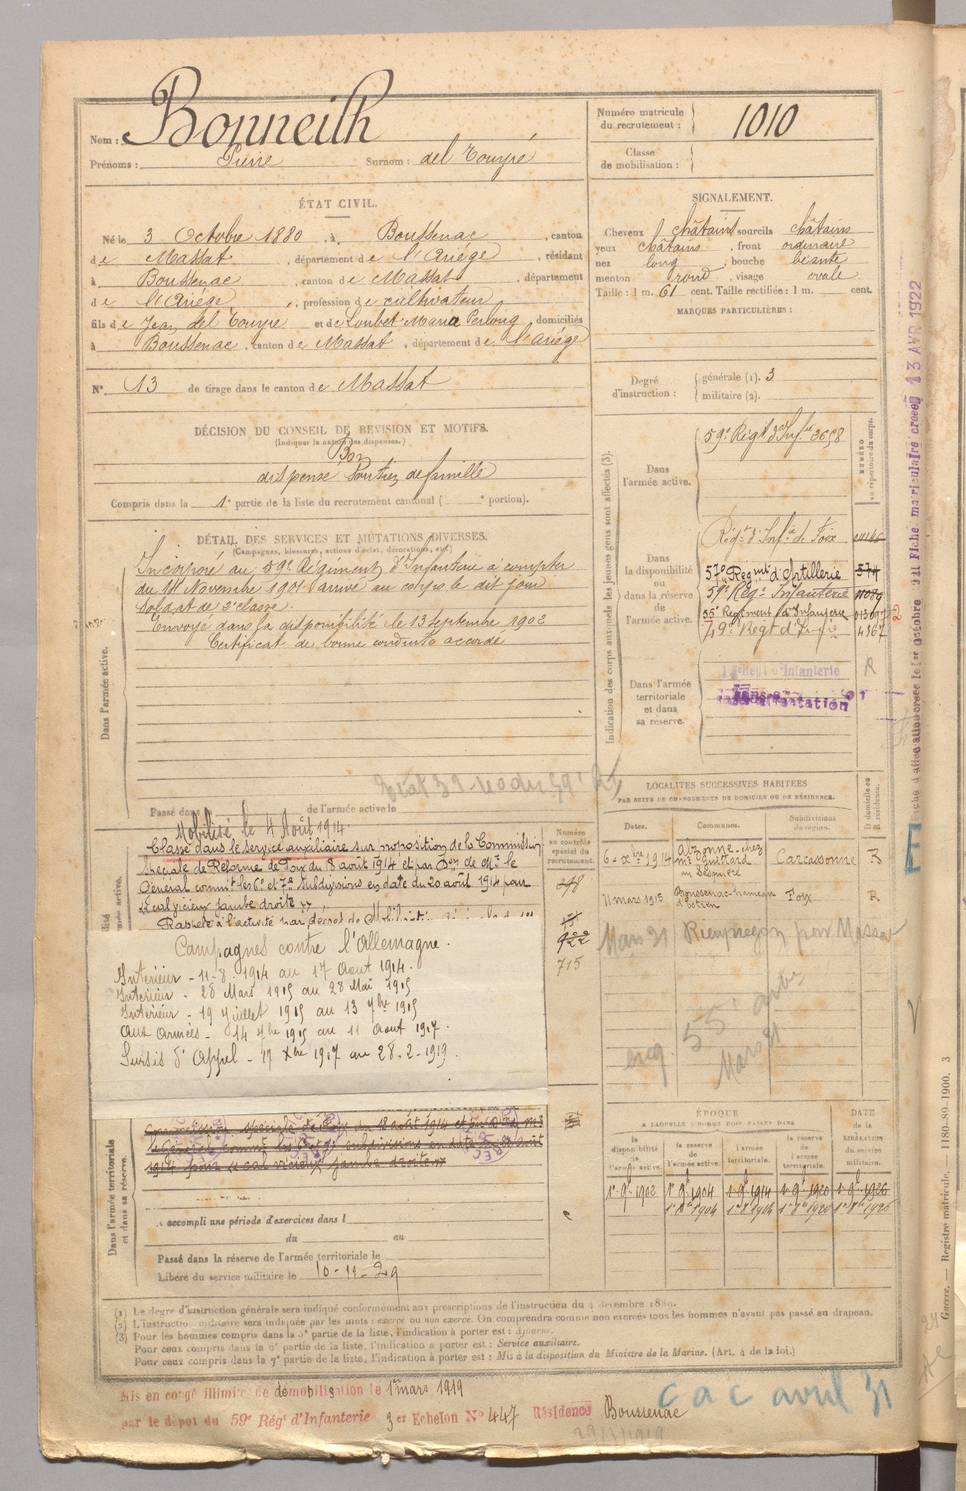 Nom : Bonneilh
Prénoms : Pierre Surnom : del Touyré
Numéro matricule du recrutement : 1010
Classe de mobilisation :
ÉTAT CIVIL.
Né le 3 Octobre 1880, à Boussenac, canton
de Massat, département de l'Ariège, résidant
à Boussenac, canton de Massat, département
de l'Ariège, profession de cultivateur
fils de Jean del Touyré et de Loubet Maria, domiciliés
à Boussenac, canton de Massat, département de l'Ariège
N° 13 de tirage dans le canton de Massat
SIGNALEMENT.
Cheveux châtains sourcils châtains
yeux châtains, front ordinaire
nez long, bouche béante
menton rond, visage ovale
Taille : 1 m. 61 cent. Taille rectifiée : 1 m. cent.
MARQUES PARTICULIÈRES :
Degré d'instruction : générale (1). 3
militaire (2).
DÉCISION DU CONSEIL DE RÉVISION ET MOTIFS.
(Indiquer la nature des dispenses.)
Bon
dispensé Soutien de famille
Compris dans la 1e partie de la liste du recrutement cantonal ( e portion).
DÉTAIL DES SERVICES ET MUTATIONS DIVERSES.
(Campagnes, blessures, actions d'éclat, décorations, etc.)
Dans l'armée active.
Incorporé au 59e Régiment d'Infanterie à compter
du 14 Novembre 1901 arrivé au corps le dit jour
soldat de 2e classe.
Envoyé dans la disponibilité le 13 septembre 1902
Certificat de bonne conduite accordé
Passé dans de l'armée active le
Indication des corps auxquels les jeunes gens sont affectés (3).
NUMÉRO au répertoire du corps.
Dans l'armée active.
59e Régt d'Infie 3658
Dans la disponibilité ou dans la réserve de l'armée active.
Régt d'Infie de Foix
57e Regiment d'Artillerie 574
59e Régt Infanterie
55e Regiment d'Infanterie
Régt d'Infie 4367
Dans l'armée territoriale et dans sa réserve.
Regt d'Infanterie
Sans affectation
Mobilisé le 4 Août 1914
Classé dans le service auxiliaire sur proposition de la Commission
spéciale de Réforme de Foix du 18 août 1914 et par Don de Mr le
Général commt les 6e et 7e subdivisions en date du 20 août 1914 pour
"cal vicieux jambe droite"
Rappelé à l'activité par décret de Mobilisation
Campagnes contre l'Allemagne.
Intérieur - 11-8-1914 au 17 Aout 1914.
Intérieur - 28 Mars 1915 au 28 Mai 1915
Intérieur - 19 Juillet 1915 au 13 7bre 1915
Aux Armées - 14 7bre 1915 au 11 Aout 1917.
Sursis d'Appel - 17 Xbre 1917 au 28-2-1919.
Numéro au contrôle spécial du recrutement.
248
922
715
LOCALITÉS SUCCESSIVES HABITÉES
PAR SUITE DE CHANGEMENTS DE DOMICILE OU DE RÉSIDENCE.
Dates. Communes. Subdivisions de région. D domicile ou R résidence.
6 xbre 1914 Alzonne chez Mr Guittard Carcassonne
11 mars 1915 Boussenac hameau d'Estien Foix R
Mars 31
Mars 31
Dans l'armée territoriale et dans sa réserve.
Commission spéciale de Foix du 18 août 1914 et par Don de Mr
le Général commt les 6e et 7e subdivisions en date du 20 août
1914 pour "cal vicieux jambe droite"
a accompli une période d'exercices dans l
du au
Passé dans la réserve de l'armée territoriale le
Libéré du service militaire le 10-11-29
ÉPOQUE
A LAQUELLE L'HOMME DOIT PASSER DANS
DATE de la LIBÉRATION du service militaire.
la disponibilité de l'armée active. la réserve de l'armée active. l'armée territoriale. la réserve de l'armée territoriale.
1er 9e 1902 1er 9e 1904 1er 9e 1914 1er 9e 1920 1er 9e 1926
(1) Le degré d'instruction générale sera indiqué conformément aux prescriptions de l'instruction du 4 décembre 1889.
(2) L'instruction militaire sera indiquée par les mots : exercé ou non exercé. On comprendra comme non exercés tous les hommes n'ayant pas passé au drapeau.
(3) Pour les hommes compris dans la 2e partie de la liste, l'indication à porter est : Ajourné.
Pour ceux compris dans la 5e partie de la liste, l'indication à porter est : Service auxiliaire.
Pour ceux compris dans la 7e partie de la liste, l'indication à porter est : Mis à la disposition du Ministre de la Marine. (Art. 4 de la loi.)
Mis en congé illimité de démobilisation le 1er mars 1919
par le dépôt du 59e Régt d'Infanterie 3er Echelon N° 447 Résidence Boussenac
29/3/1919
cac avril 31
Guerre. — Registre matricule. — 1180-89-1900. 3